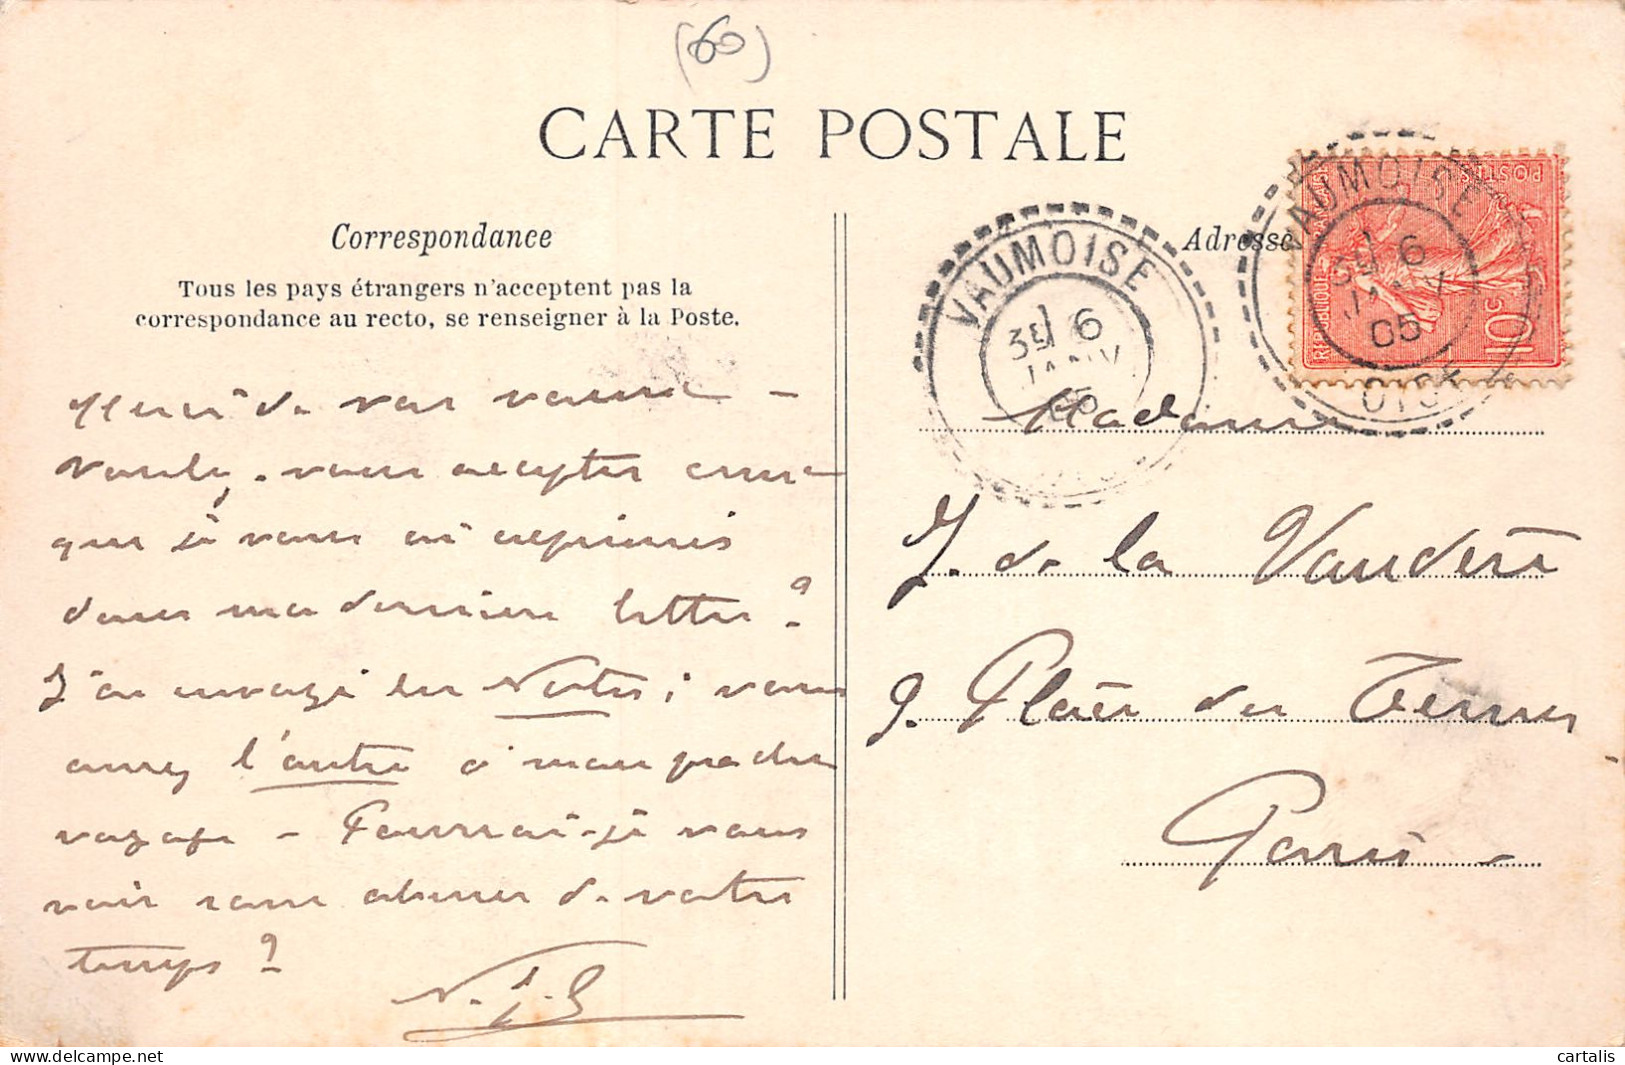 (60)
CARTE POSTALE
Correspondance
Tous les pays étrangers n'acceptent pas la
correspondance au recto, se renseigner à la Poste.
Merci de vos voeux
vous acceptez
que je vous ai exprimés
dans ma dernière lettre ?
J'ai envoyé les Notes ; vous
aurez l'autre à mon prochain
voyage – Pourrai-je vous
voir sans abuser de votre
temps ?
Adresse
VAUMOISE
6
JANV
05
VAUMOISE
6
JANV
05
OISE
REPUBLIQUE FRANÇAISE
POSTES
10c
Madame
J. de la Vaudère
9. Place des Ternes
Paris –
delcampe.net
cartalis